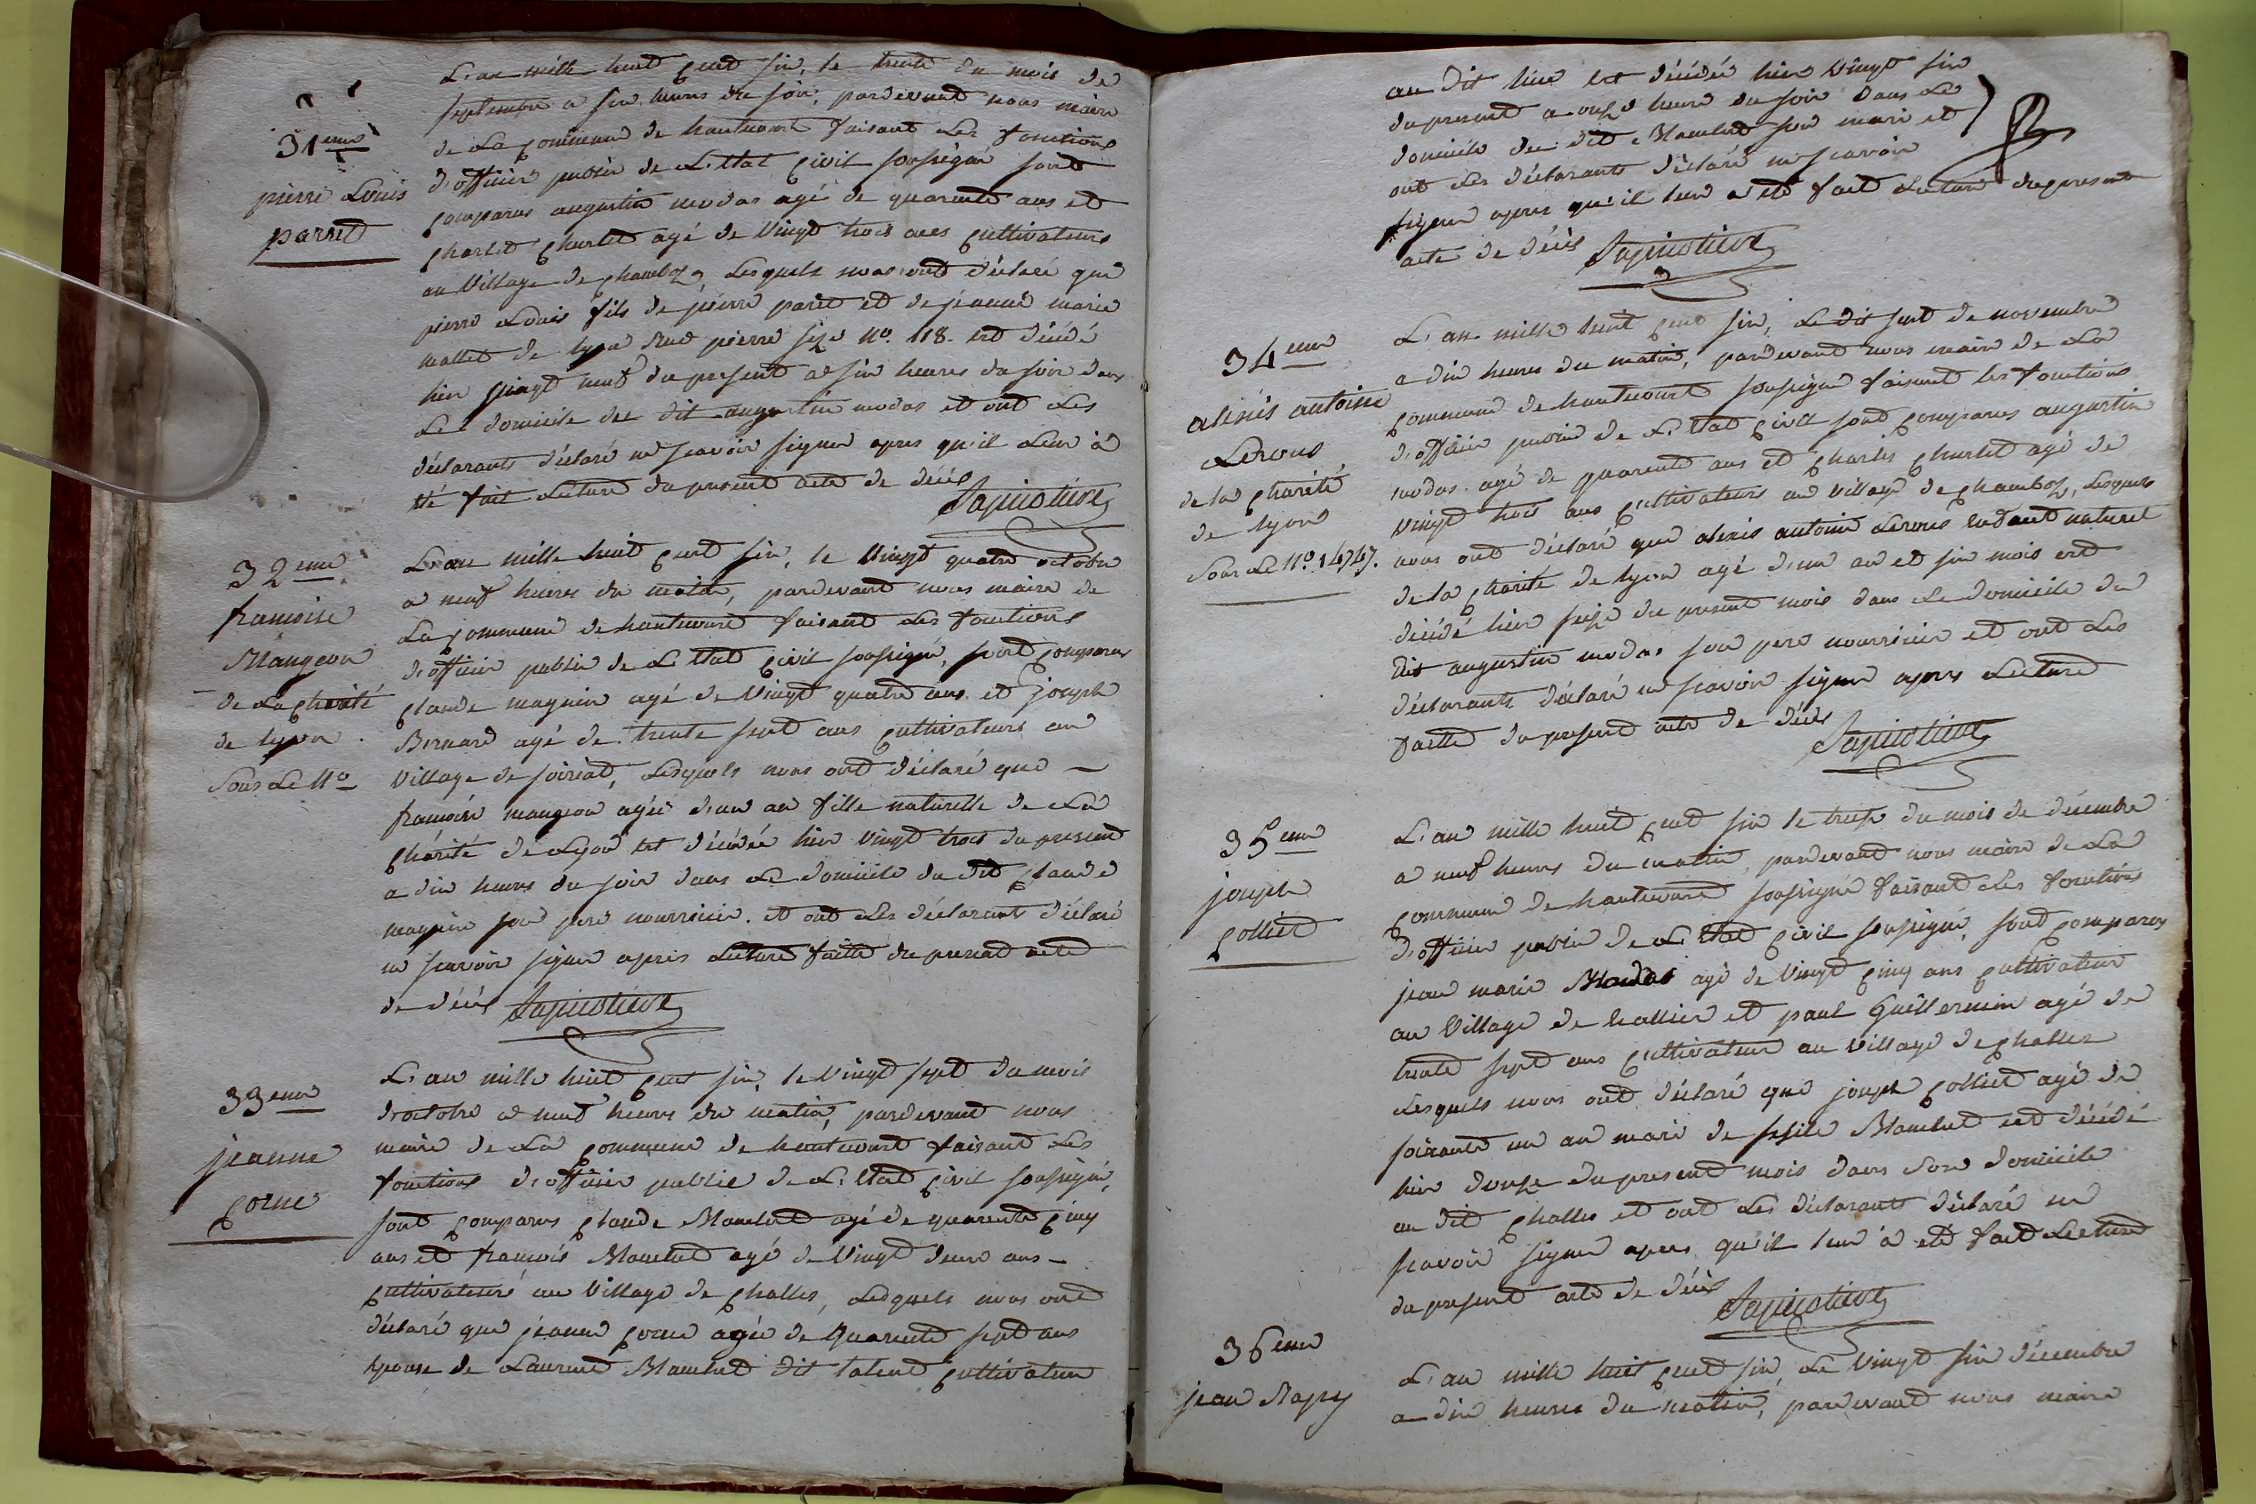 31eme
pierre Louis
parret
L'an mille huit cent six, le trente du mois de
septembre a six heures du soir, pardevant nous maire
de La commune de hautecourt faisant Les fonctions
d'officier public de L'Etat civil soussigné sont
comparus augustin modas agé de quarente ans et
Charles Churlet agé de vingt trois ans cultivateurs
au village de chamboz, Lesquels nous ont déclaré que
pierre Louis fils de pierre paret et de jeanne marie
mallet de lyon Rue pierre size No. 118. est décédé
hier vingt neuf du present a six heures du soir dans
Le domicile du dit augustin modas et ont Les
déclarants déclaré ne scavoir signer apres qu'il Leur à
été fait Lecture du present acte de décès
32eme
francoise
Mangeon
de La charité
de lyon
sous Le No
L'an mille huit cent six, le vingt quatre octobre
a neuf heures du matin, pardevant nous maire de
La commune de hautecourt faisant Les fonctions
d'officier public de L'Etat civil soussigné, sont comparus
claude magnin agé de vingt quatre ans et joseph
Bernard agé de trente sept ans cultivateurs au
village de soiriat, Lesquels nous ont déclaré que
francoise mangeon agée d'un an fille naturelle de La
charité de Lyon est décédée hier vingt trois du present
a dix heures du soir dans Le domicile du dit claude
magnin son pere nourricier. et ont Les déclarants déclaré
ne scavoir signer apres Lecture faitte du present acte
de décès
33eme
jeanne
corne
L'an mille huit cent six, le vingt sept du mois
d'octobre a neuf heures du matin, pardevant nous
maire de La commune de hautecourt faisant Les
fonctions d'officier public de L'Etat civil soussigné,
sont comparus claude Mambud agé de quarente cinq
ans et francois Mambud agé de vingt deux ans
cultivateurs au village de challes, Lesquels nous ont
déclaré que jeanne corne agée de quarente sept ans
epouse de Laurent Mambud dit cultivateur
au dit lieu est décédée hier vingt six
du present a onze heures du soir dans Le
domicile du dit Mambud son mari et
ont Les déclarants déclaré ne scavoir
signer apres qu'il leur a eté fait Lecture du present
acte de décès
34eme
alexis antoine
Leroux
de la charité
de lyon
sous Le No. 1474.
L'an mille huit cent six, Le dix sept de novembre
a dix heures du matin, pardevant nous maire de La
commune de hautecourt soussigné faisant les fonctions
d'officier public de L'Etat civil sont comparus augustin
modas agé de quarente ans et charles churlet agé de
vingt trois ans cultivateurs au village de chamboz, Lesquels
nous ont déclaré que alexis antoine Leroux enfant naturel
de la charité de lyon agé d'un an et six mois est
décédé hier seize du present mois dans Le domicile du
dit augustin modas son pere nourricier et ont Les
déclarants déclaré ne scavoir signer apres Lecture
faitte du present acte de décès
35eme
joseph
colliet
L'an mille huit cent six le treize du mois de décembre
a neuf heures du matin, pardevant nous maire de La
commune de hautecourt soussigné faisant Les fonctions
d'officier public de L'Etat civil soussigné, sont comparus
jean marie agé de vingt cinq ans cultivateur
au village de hallier et paul Guillermin agé de
trente sept ans cultivateur au village de challes
Lesquels nous ont déclaré que joseph colliet agé de
soixante un an mari de Mambud est décédé
hier douze du present mois dans son domicile
au dit challes et ont Les déclarants déclaré ne
scavoir signer apres qu'il leur à eté fait Lecture
du present acte de décès
36eme
jean Rapy
L'an mille huit cent six, Le vingt six décembre
a dix heures du matin, pardevant nous maire